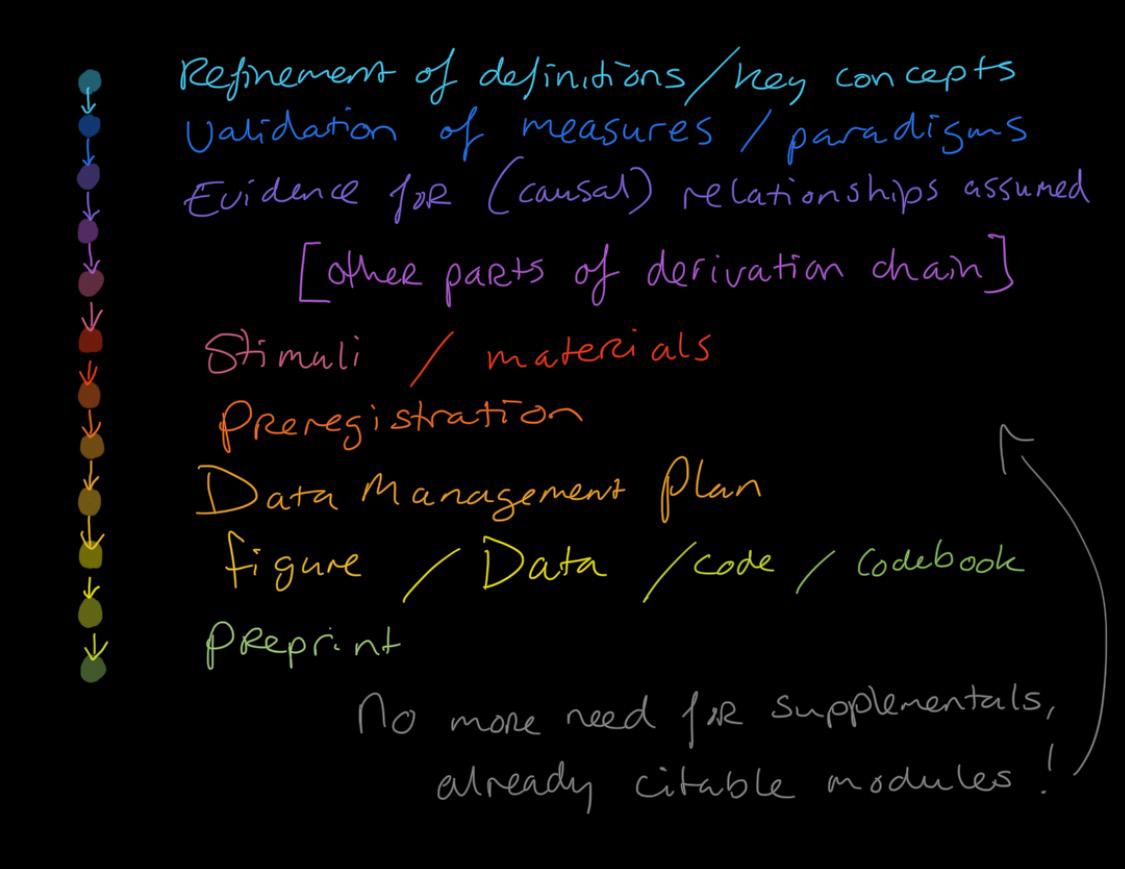 Refinement of definitions/key concepts
Validation of measures / paradigms
Evidence for (causal) relationships assumed
[other parts of derivation chain]
Stimuli / materials
Preregistration
Data Management Plan
figure / Data / code / codebook
Preprint
No more need for supplementals,
already citable modules!